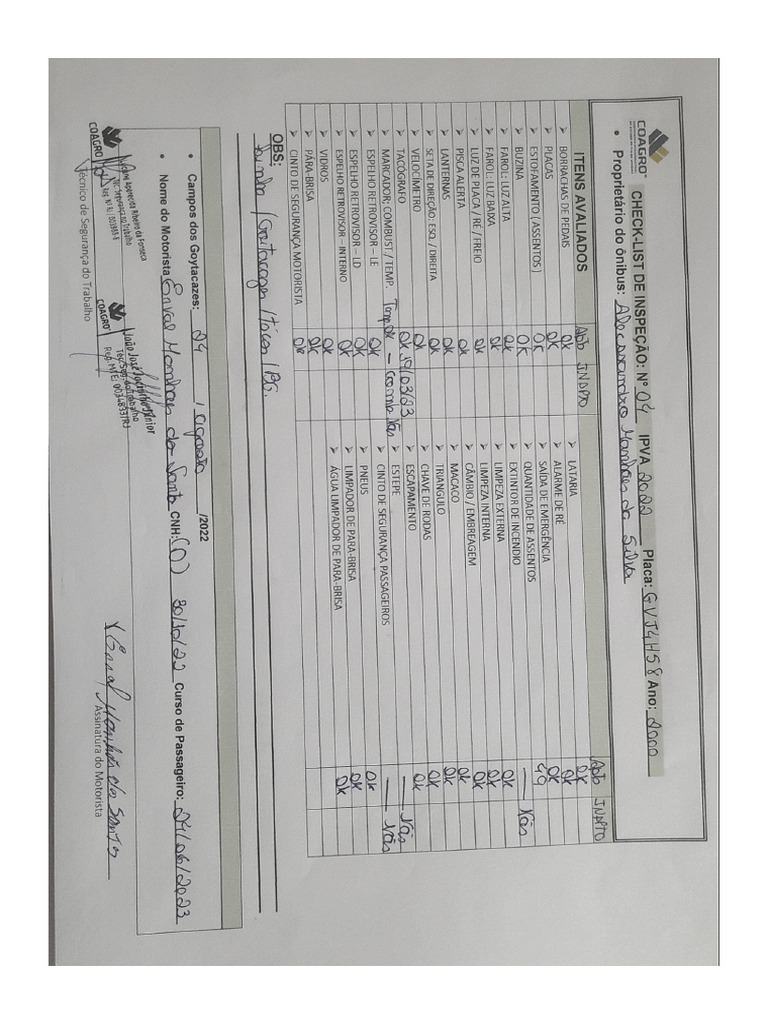 COAGRO CHECK-LIST DE INSPEÇÃO: Nº 04 IPVA 2022 Placa: GVJ4H58 Ano: 2000
• Proprietário do ônibus: Manhães da Silva
ITENS AVALIADOS Apto INAPTO Apto INAPTO
➢ BORRACHAS DE PEDAIS OK ➢ LATARIA OK
➢ PLACAS OK ➢ ALARME DE RÉ OK
➢ ESTOFAMENTO ( ASSENTOS ) OK ➢ SAÍDA DE EMERGÊNCIA OK
➢ BUZINA OK ➢ QUANTIDADE DE ASSENTOS 49
➢ FAROL: LUZ ALTA OK ➢ EXTINTOR DE INCENDIO — Não
➢ FAROL: LUZ BAIXA OK ➢ LIMPEZA EXTERNA OK
➢ LUZ DE PLACA / RÉ / FREIO OK ➢ LIMPEZA INTERNA OK
➢ PISCA ALERTA OK ➢ CÂMBIO / EMBREAGEM OK
➢ LANTERNAS OK ➢ MACACO OK
➢ SETA DE DIREÇÃO: ESQ. / DIREITA OK ➢ TRIANGULO OK
➢ VELOCÍMETRO OK ➢ CHAVE DE RODAS OK
➢ TACÓGRAFO OK 19/03/23 ➢ ESCAPAMENTO OK
➢ MARCADOR; COMBUST / TEMP. Temp OK — Comb Não ➢ ESTEPE — Não
➢ ESPELHO RETROVISOR – LE OK ➢ CINTO DE SEGURANÇA PASSAGEIROS — Não
➢ ESPELHO RETROVISOR – LD OK ➢ PNEUS OK
➢ ESPELHO RETROVISOR – INTERNO OK ➢ LIMPADOR DE PARA-BRISA OK
➢ VIDROS OK ➢ ÁGUA LIMPADOR DE PARA-BRISA OK
➢ PÁRA-BRISA OK
➢ CINTO DE SEGURANÇA MOTORISTA OK
OBS:
• Campos dos Goytacazes: 24 , agosto /2022
• Nome do Motorista Manhães do Santo CNH:(D) 30/10/22 Curso de Passageiro: 24/06/2023
COAGRO
Ribeiro da Fonseca
COAGRO
João José
Técnico de Segurança do Trabalho
Manhães dos Santos
Assinatura do Motorista